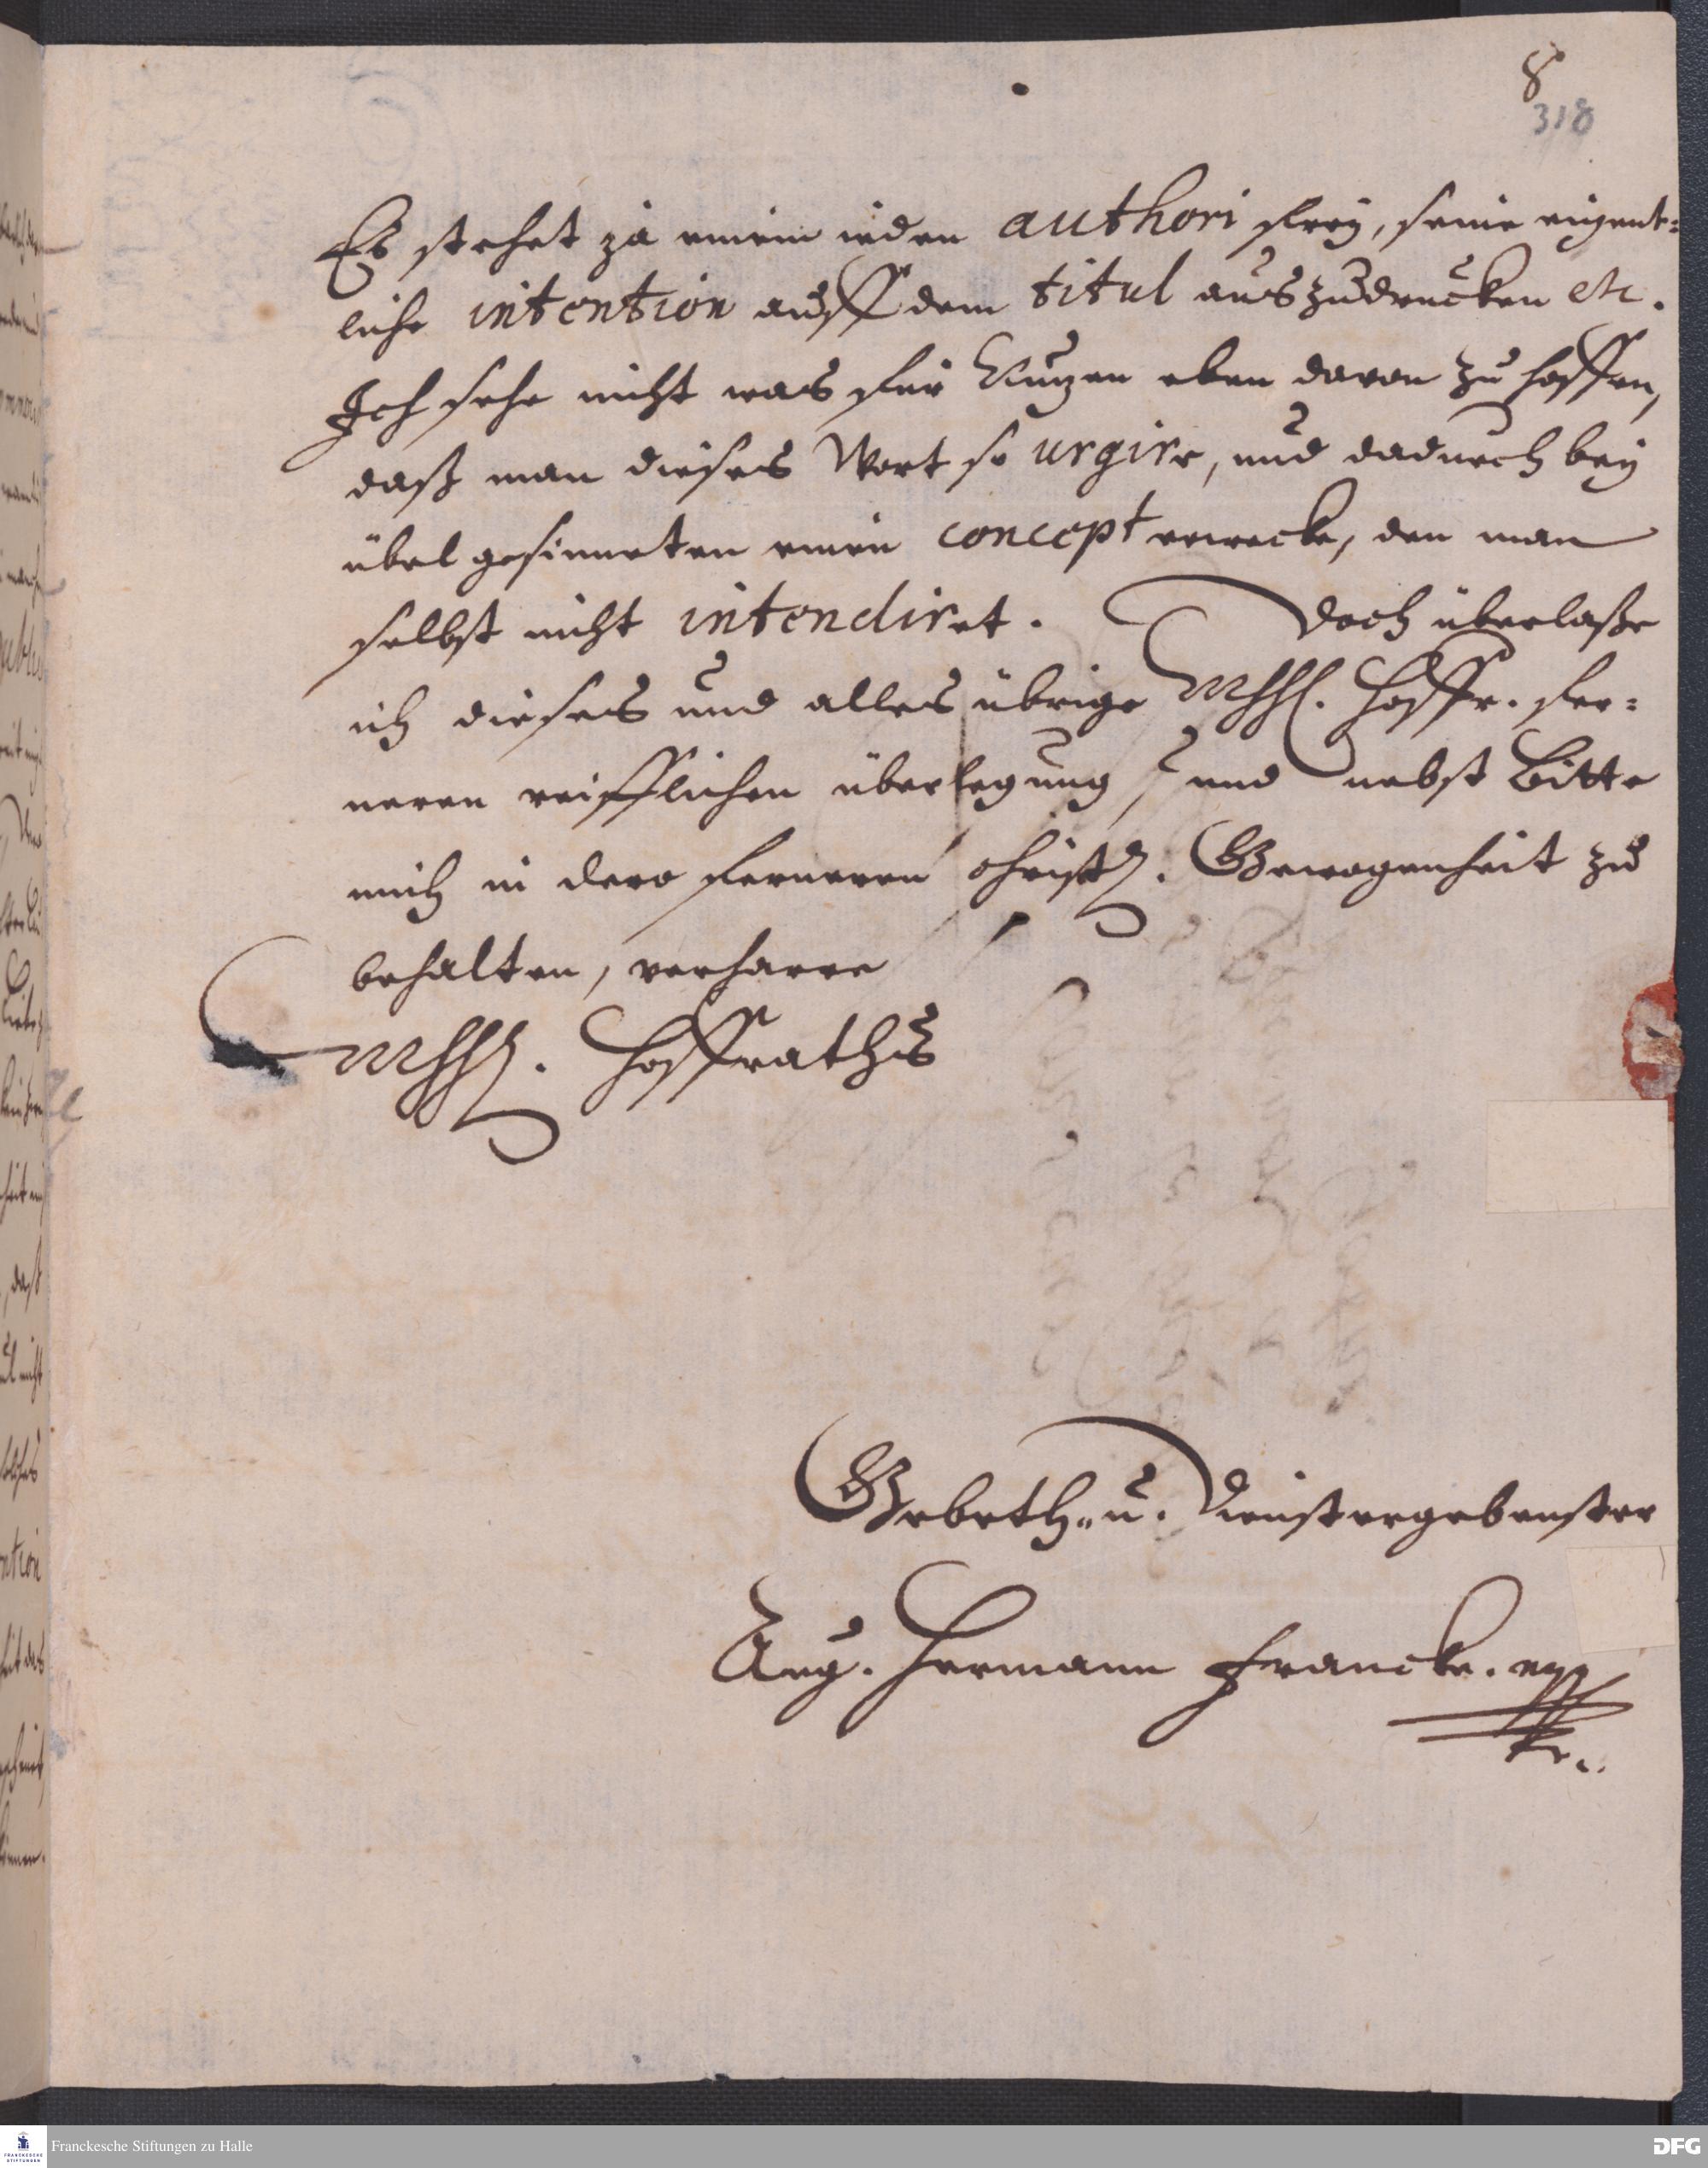 8
318
Es stehet ja einem ieden authori frey, seine eigent=
liche intention auff dem titul auszudrucken etc.
Ich sehe nicht was für Nutzen eben davon zu hoffen,
daß man dieses Wort so urgire, und dadurch bey
übel gesinneten einen concept erwecke, den man
selbst nicht intendiret. Doch überlaße
ich dieses und alles übrige MhhH. Hoffr. fer=
neren reifflichen überlegung, und nebst Bitte
mich in dero ferneren christl. Gewogenheit zu
behalten, verharre
MhhH. Hoffraths
Gebeth- u. Dienstergebenster
Aug. Hermann Francke. mpp
Franckesche Stiftungen zu Halle
DFG